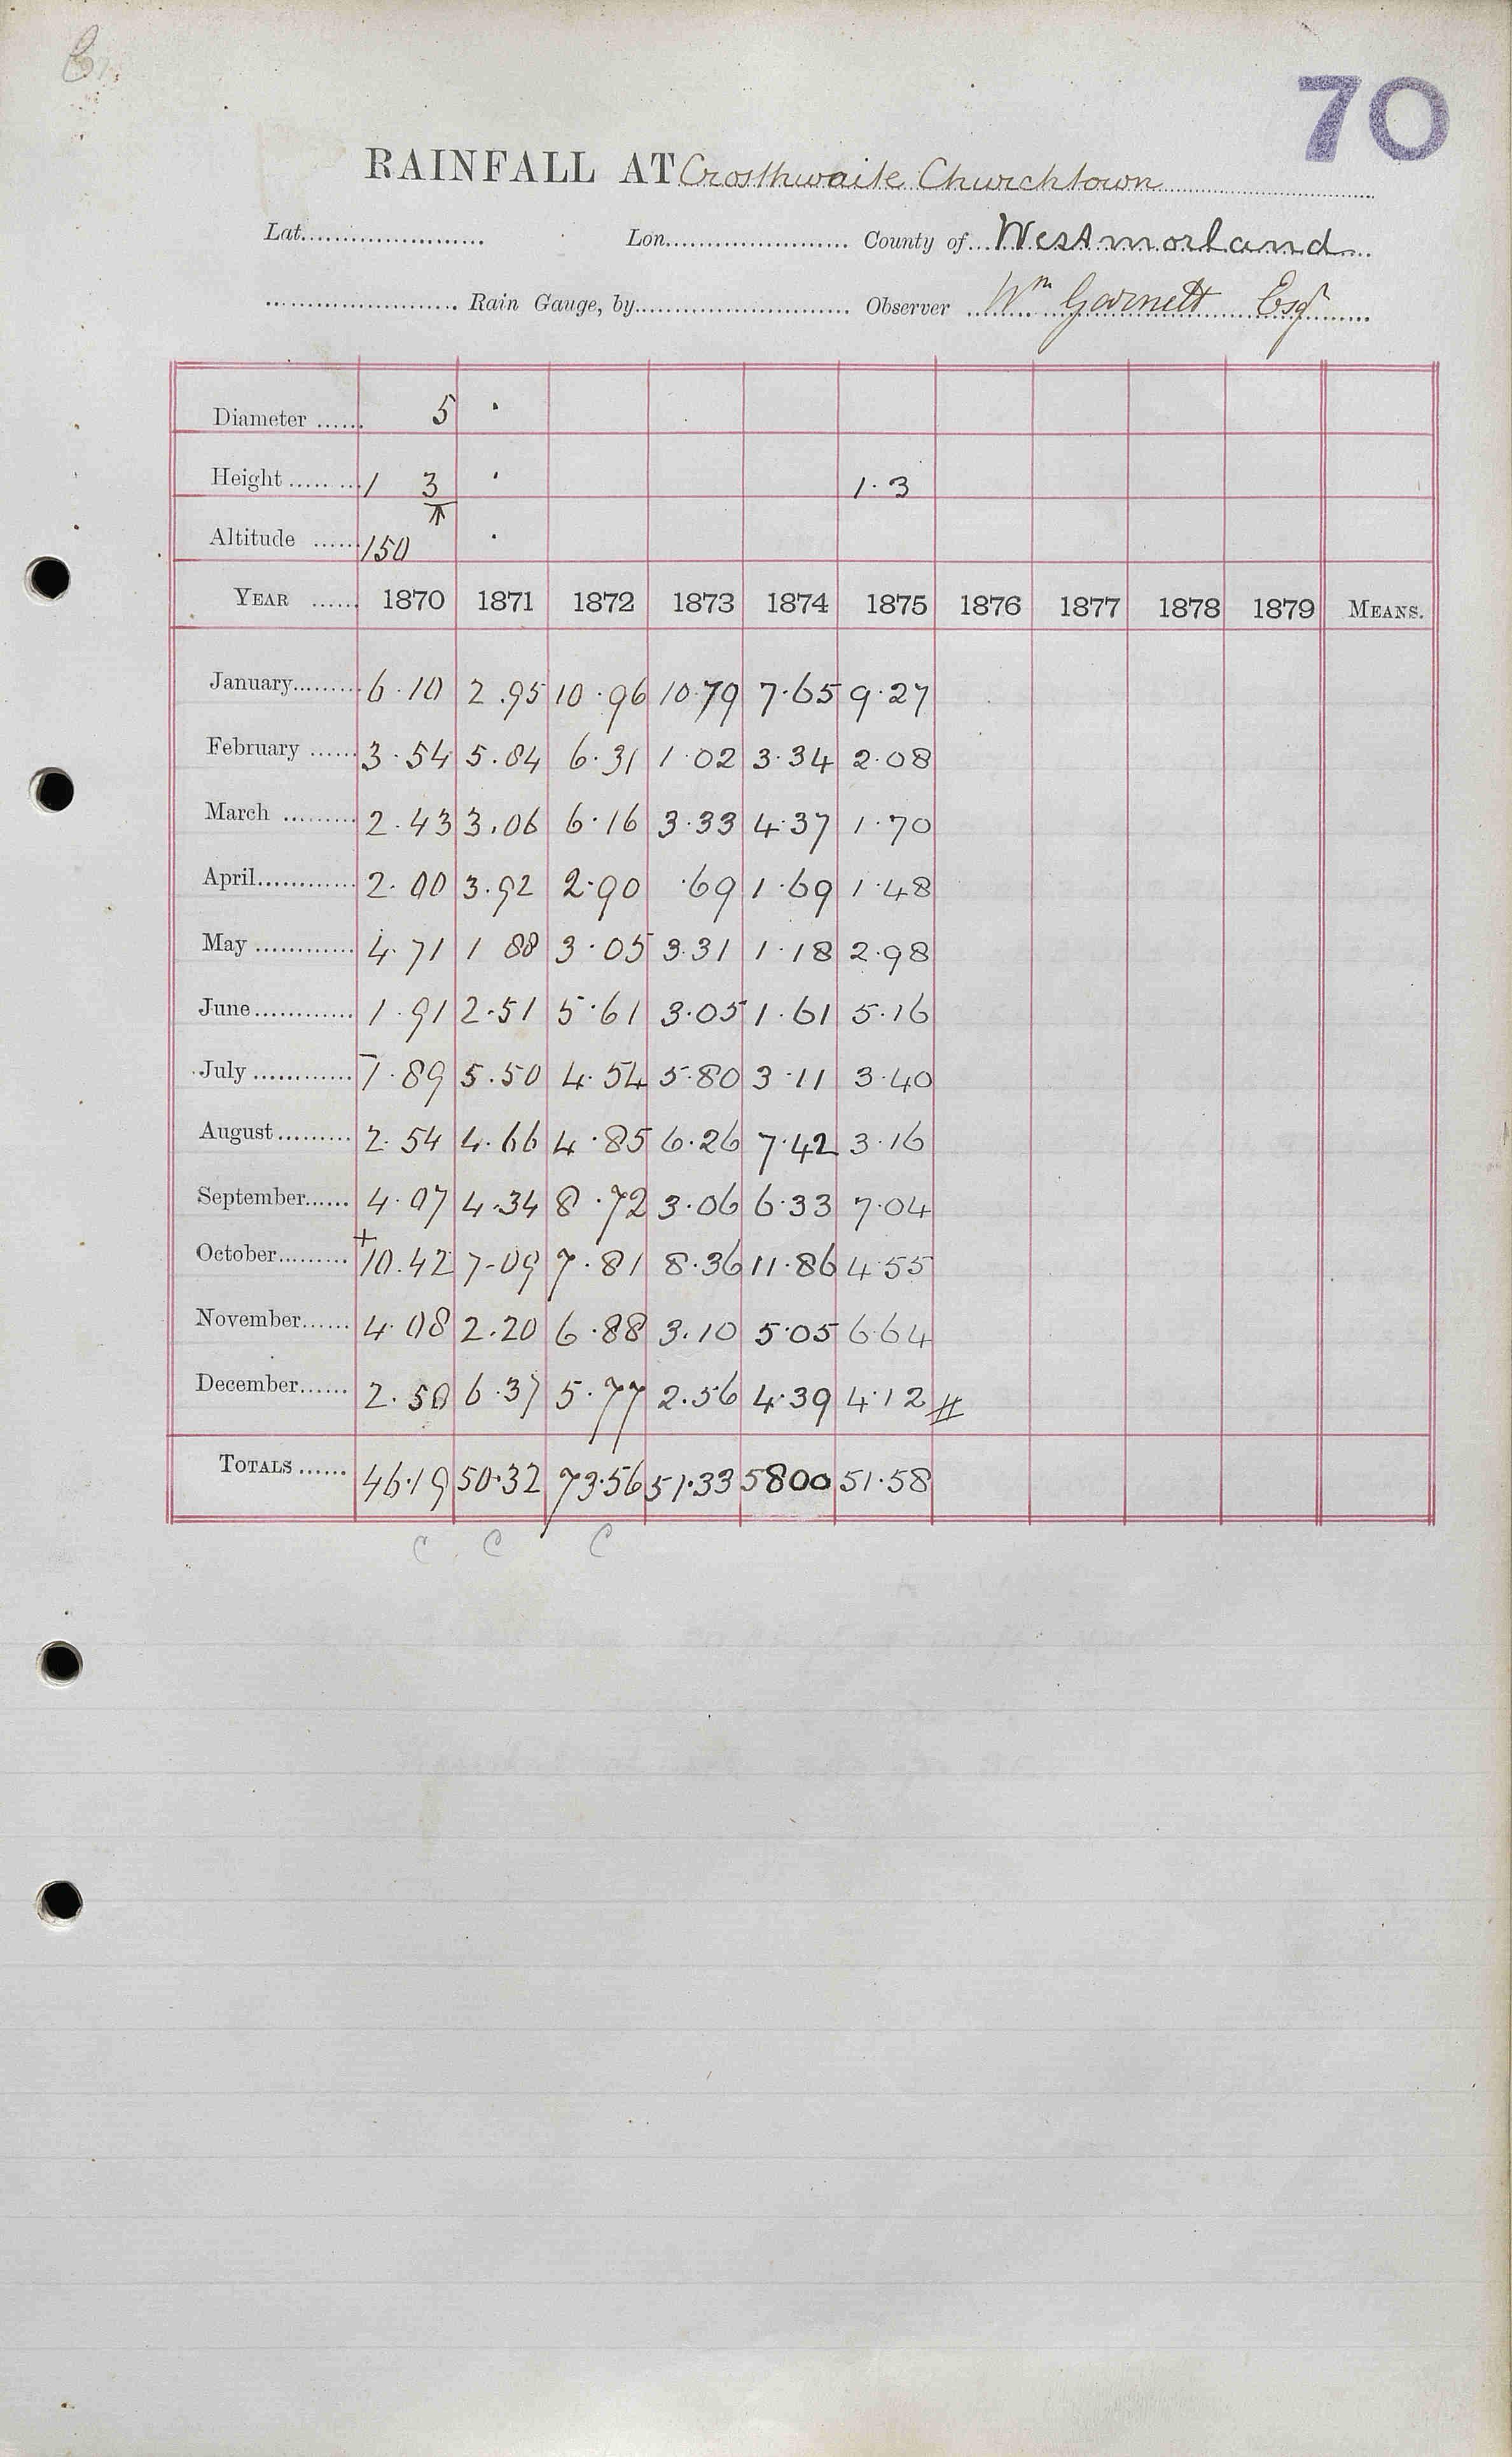 70
RAINFALL AT Crosthwaite Churchtown
Lat. Lon. County of Westmorland
Rain Gauge, by Observer Wm Garnett Esqr
Diameter 5 ·
Height 1 3 · 1·3
Altitude 150 ·
YEAR 1870 1871 1872 1873 1874 1875 1876 1877 1878 1879 MEANS.
January 6·10 2.95 10·96 10·79 7·65 9·27
February 3·54 5.84 6·31 1·02 3·34 2·08
March 2·43 3.06 6·16 3·33 4·37 1·70
April 2·00 3.92 2·90 ·69 1·69 1·48
May 4·71 1 88 3·05 3·31 1·18 2·98
June 1·91 2·51 5·61 3·05 1·61 5·16
July 1·89 5.50 4·54 5·80 3·11 3·40
August 2·54 4·66 4·85 6·26 7·42 3·16
September 4·07 4·34 8·72 3·06 6·33 7·04
October + 10·42 7·09 7·81 8·36 11·86 4·55
November 4·08 2.20 6·88 3.10 5·05 6·64
December 2·50 6·37 5·77 2·56 4·39 4·12
TOTALS 46·19 50·32 73·56 51·33 5800 51·58
C C C